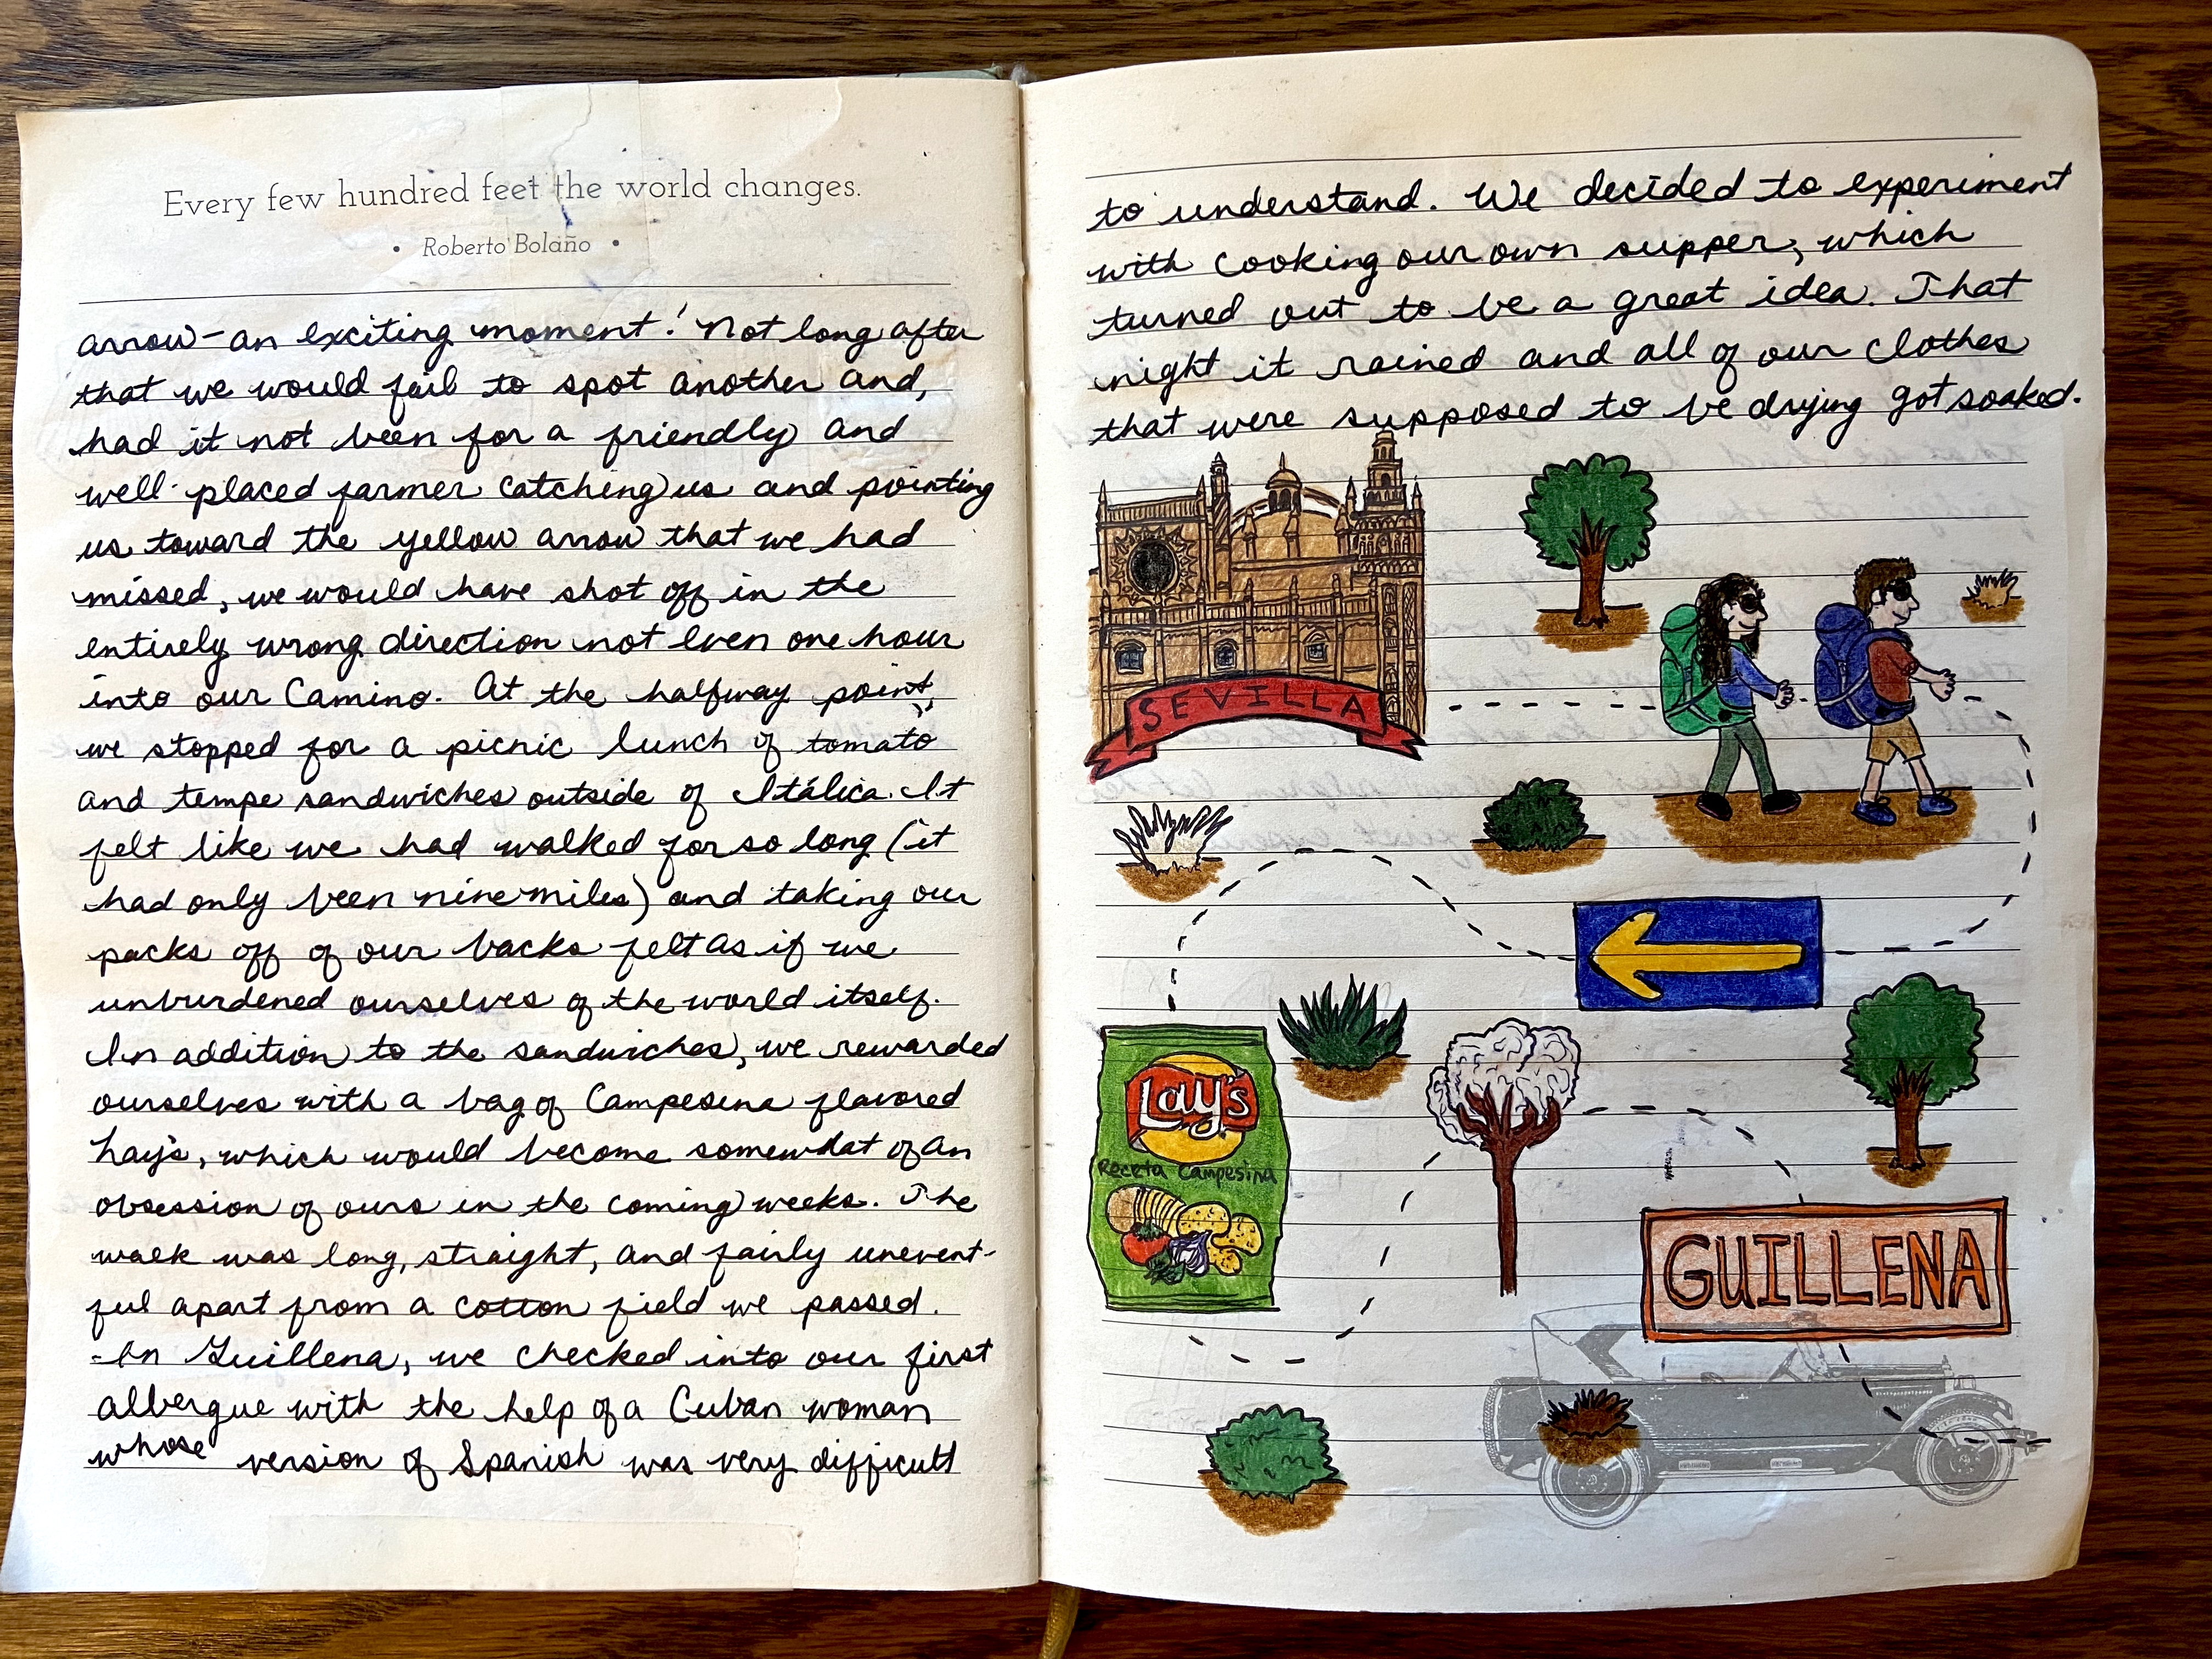 Every few hundred feet the world changes.
• Roberto Bolaño •
arrow - an exciting moment! Not long after
that we would fail to spot another and,
had it not been for a friendly and
well-placed farmer catching us and pointing
us toward the yellow arrow that we had
missed, we would have shot off in the
entirely wrong direction not even one hour
into our Camino. At the halfway point,
we stopped for a picnic lunch of tomato
and tempe sandwiches outside of Itálica. It
felt like we had walked for so long (it
had only been nine miles) and taking our
packs off of our backs felt as if we
unburdened ourselves of the world itself.
In addition to the sandwiches, we rewarded
ourselves with a bag of Campesina flavored
Lay's, which would become somewhat of an
obsession of ours in the coming weeks. The
walk was long, straight, and fairly unevent-
ful apart from a cotton field we passed.
In Guillena, we checked into our first
albergue with the help of a Cuban woman
whose version of Spanish was very difficult
to understand. We decided to experiment
with cooking our own supper, which
turned out to be a great idea. That
night it rained and all of our clothes
that were supposed to be drying got soaked.
SEVILLA
Lay's
Receta Campesina
GUILLENA